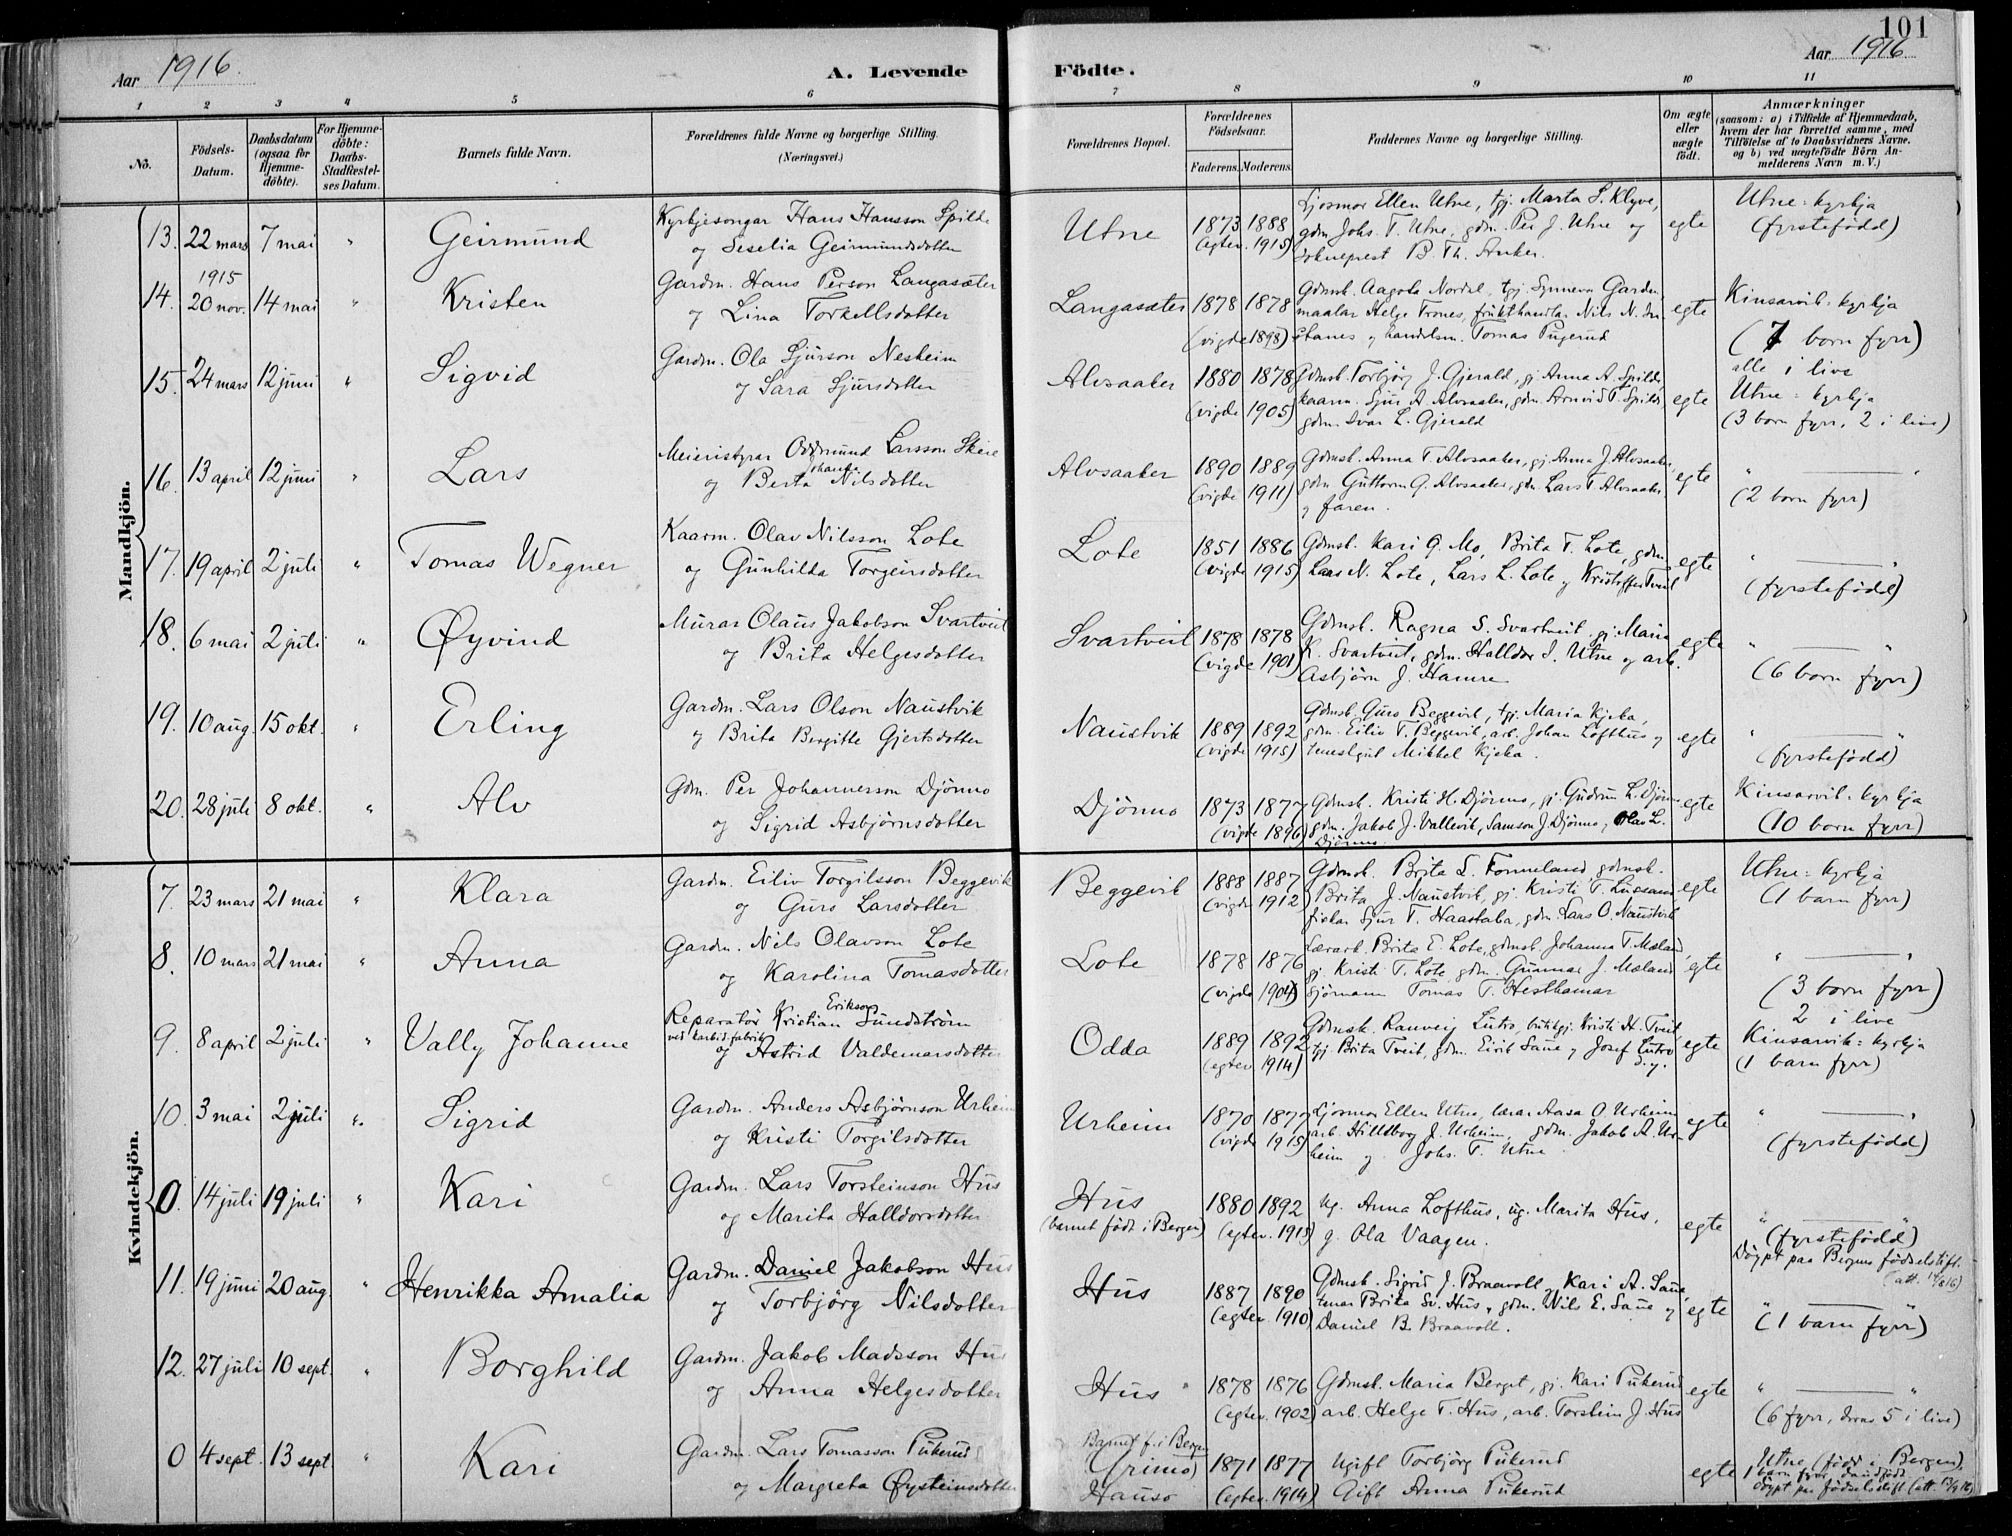 101
Aar 1916.
A. Levende Födte.
Aar 1916
1 2 3 4 5 6 7 8 9 10 11
No.
Födsels-Datum.
Daabsdatum (ogsaa for Hjemme-döbte).
For Hjemme-döbte: Daabs-Stadfæstel-ses Datum.
Barnets fulde Navn.
Forældrenes fulde Navne og borgerlige Stilling. (Næringsvei.)
Forældrenes Bopæl.
Forældrenes Födselsaar.
Faderens. Moderens.
Faddernes Navne og borgerlige Stilling.
Om ægte eller uægte födt.
Anmærkninger
(saasom: a) i Tilfælde af Hjemmedaab, hvem der har forrettet samme, med Tilföielse af to Daabsvidners Navne. og b) ved uægtefödte Börn Anmelderens Navn m. V.)
Mandkjön.
13. 22 mars 7 mai " Geirmund
Kyrkjesongar Hans Hansson Spilde
og Seselia Geirmundsdotter
Utne 1873 1888 (egtev. 1915)
Ljosmor Ellen Utne, tgj. Marta S. Klyve,
gdm Johs. T. Utne, gdm. Per J. Utne og
sokneprest B. Th. Anker.
egte Utne = kyrkja
(fyrstefödd)
1915
14. 20 nov. 14 mai " Kristen
Gardm. Hans Person Langasæter
og Lina Torkellsdotter
Langasæter 1878 1878 (vigde 1898)
Gdmsk. Aagota Nordal, tgj. Synneva Gardm.
maalar Helge Trones, frukthandlar Nils N.
stanes og handelsm. Tomas Pugerud
egte Kinsarvik = kyrkja
(7 born fyrr)
alle i live
15. 24 mars 12 juni " Sigvid
Gardm. Ola Sjurson Nesheim
og Sara Sjursdotter
Alvsaaker 1880 1878 (vigde 1905)
Gdmsk. Torbjörg J. Gjerald, gj Anna A. Spilde,
kaarm. Sjur A. Alvsaaker, gdm. Arnvid T. Spilde,
gdm. Ivar L. Gjerald
egte Utne = kyrkja
(3 born fyrr, 2 i live)
16. 13 april 12 juni " Lars
Meieristyrar Oddmund Larsson Skeie
og Berta Johanna Nilsdotter
Alvsaaker 1890 1889 (vigde 1911)
Gdmsk. Anna T. Alvsaaker, gj. Anna J. Alvsaaker,
gdm Guttorm G. Alvsaaker, gdm. Lars T. Alvsaaker
og faren.
egte " "
(2 born fyrr)
17. 19 april 2 juli " Tomas Wegner
Kaarm. Olav Nilsson Lote
og Gunhilda Torgeirsdotter
Lote 1851 1886 (vigde 1915)
Gdmsk. Kari G. Mo, Brita T. Lote, gdm
Laas N. Lote, Lars L. Lote og Kristoffer Tveit
egte " "
(fyrstefödd)
18. 6 mai 2 juli " Øyvind
Murar Olaus Jakobson Svartveit
og Brita Helgesdotter
Svartveit 1878 1878 (vigde 1901)
Gdmsk. Ragna S. Svartveit, gj. Maria
K. Svartveit, gdm. Halldor I. Utne og arb.
Asbjörn J. Hamre
egte " "
(6 born fyrr)
19. 10 aug. 15 okt. " Erling
Gardm. Lars Olson Naustvik
og Brita Bergitte Gjertsdotter
Naustvik 1889 1892 (vigde 1915)
Gdmsk. Guro Beggevik, tgj. Maria Kjeka,
gdm. Eiliv T. Beggevik, arb. Johan Lofthus og
tenestgut Mikkel Kjeka.
egte " "
(fyrstefödd)
20. 28 juli 8 okt. " Alv
Gdm. Per Johannesson Djönno
og Sigrid Asbjörnsdotter
Djönno 1873 1877 (vigde 1896)
Gdmsk. Kristi H. Djönno, gj. Gudrun L. Djönno
gdm. Jakob J. Vallevik, Samson J. Djönno, Olav L.
Djönno.
egte Kinsarvik = kyrkja
(10 born fyrr)
Kvindekjön.
7. 23 mars 21 mai " Klara
Gardm. Eiliv Torgilsson Beggevik
og Guro Larsdotter
Beggevik 1888 1887 (vigde 1912)
Gdmsk. Brita S. Fonneland gdmsk.
Brita J. Naustvik, gj. Kristi T.
fiskar Sjur T. Haastabø, gdm. Lars O. Naustvik
egte Utne = kyrkja
(1 barn fyrr)
8. 10 mars 21 mai " Anna
Gardm. Nils Olavson Lote
og Karolina Tomasdotter
Lote 1878 1876 (vigde 1904)
Lærark. Brita E. Lote, gdmsk. Johanna T. Mæland,
gj. Kristi T. Lote gdm. Gunnar J. Mæland
Sjömann Tomas T. Hesthamar
egte " "
(3 born fyrr)
2 i live
9. 8 april 2 juli " Vally Johanne
Reparatør Kristian Erikson Sundström
ved karbidfabrik
og Astrid Valdemarsdotter
Odda 1889 1892 (egtev 1914)
Gdmsk. Ranveig Lutro, butikgj. Kristi H. Tveit,
tgj. Brita Tveit, gdm. Eirik Saue og Josef Lutro
d.y.
egte Kinsarvik = kyrkja
(1 barn fyrr)
10. 3 mai 2 juli " Sigrid
Gardm. Anders Asbjörnson Urheim
og Kristi Torgilsdotter
Urheim 1870 1877 (vigde 1915)
Ljosmor Ellen Utne, lærar Aasa O. Urheim
arb. Hilldborg J. Urheim, gdm. Jakob A. Ur-
heim og Johs. T. Utne
egte " "
(fyrstefödd)
0. 14 juli 19 juli " Kari
Gardm. Lars Torsteinson Hus
og Marita Halldorsdotter
Hus
(barnet födt i Bergen)
1880 1892 (egtev. 1915)
ug. Anna Lofthus, ug. Marita Hus,
g. Ola Vaagen.
egte " "
(fyrstefödd)
Döypt paa Bergens födselstift.
(att. 14/8 16)
11. 19 juni 20 aug. " Henrikka Amalia
Gardm. Daniel Jakobson Hus
og Torbjörg Nilsdotter
Hus 1887 1890 (egtev. 1910)
Gdmsk. Sigrid J. Braavoll, Kari A. Saue,
tenar Brita Sv. Hus, gdm. Nils E. Saue og
Daniel B. Braavoll.
egte " "
(1 barn fyrr)
12. 27 juli 10 sept. " Borghild
Gardm. Jakob Madsson Hus
og Anna Helgesdotter
Hus 1878 1876 (egtev. 1902)
Gdmsk. Maria Berget, gj. Kari Pukerud
arb. Helge T. Hus, arb. Torstein J. Hus
egte " "
(6 fyrr, derav 5 i live)
0 4 sept. 13 sept. " Kari
Gardm. Lars Tomasson Pukerud
og Margreta Øysteinsdotter
Barnet f. i Bergen
(Grimo)
Hauso
1871 1877 (egtev. 1914)
Ugift Torbjörg Pukerud
Gift Anna Pukerud
egte Utne (född i Bergen),
1 barn fyrr, daudfödt
Döypt paa födselsstift. (att. 13/9 16)